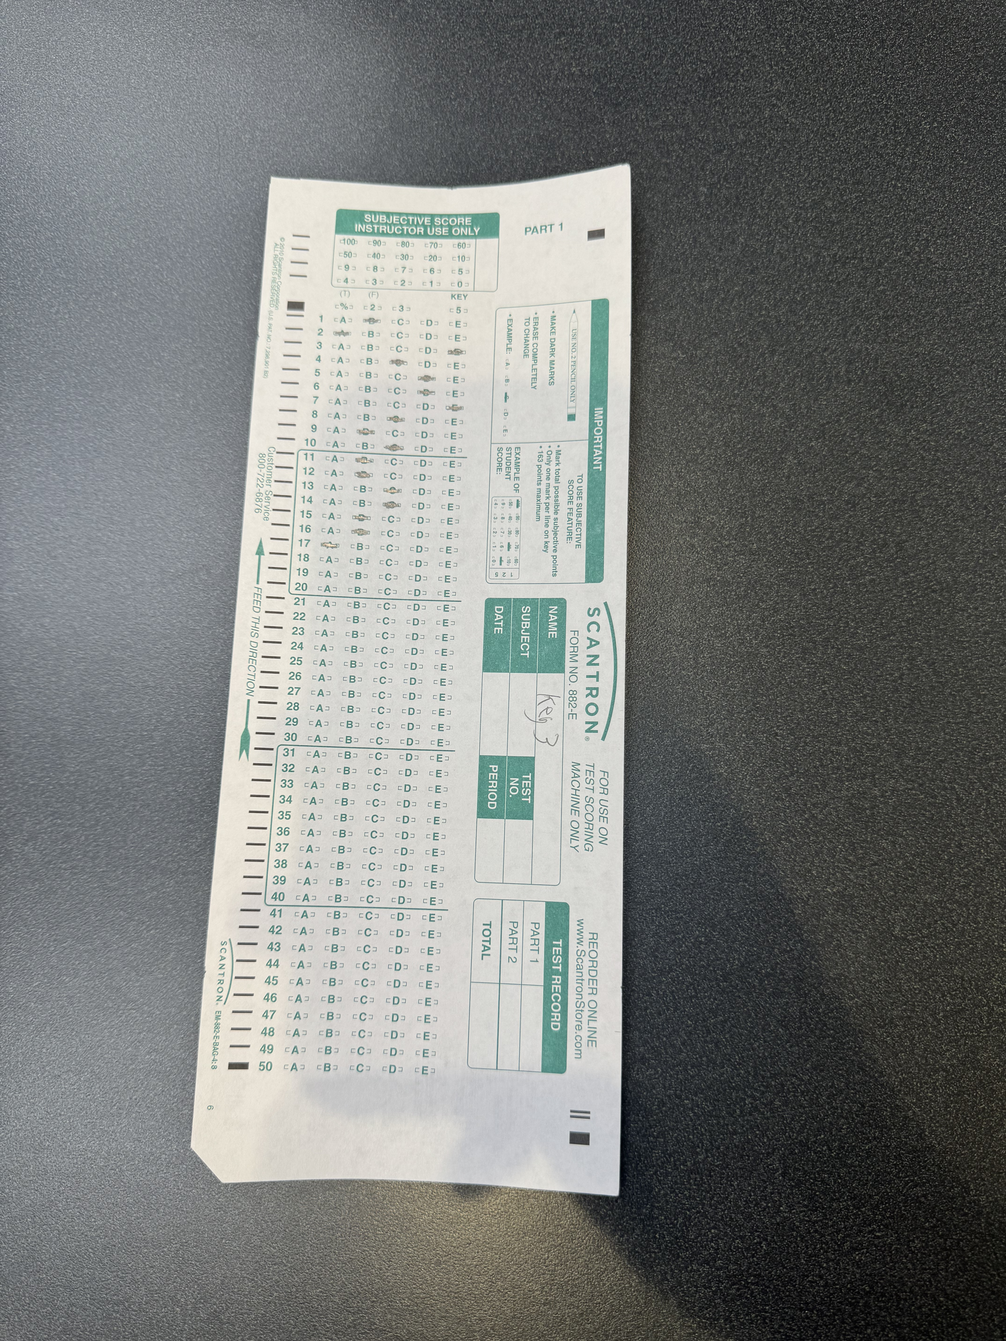 SUBJECTIVE SCORE
INSTRUCTOR USE ONLY
100 90 80 70 60
50 40 30 20 10
9 8 7 6 5
4 3 2 1 0
(T) (F) KEY
% 2 3 5
1 A C D E
2 B C D E
3 A B C D
4 A B D E
5 A B C E
6 A B C E
7 A B C D
8 A B D E
9 A C D E
10 A B D E
11 A C D E
12 A C D E
13 A B D E
14 A B D E
15 A C D E
16 A C D E
17 B C D E
18 A B C D E
19 A B C D E
20 A B C D E
21 A B C D E
22 A B C D E
23 A B C D E
24 A B C D E
25 A B C D E
26 A B C D E
27 A B C D E
28 A B C D E
29 A B C D E
30 A B C D E
31 A B C D E
32 A B C D E
33 A B C D E
34 A B C D E
35 A B C D E
36 A B C D E
37 A B C D E
38 A B C D E
39 A B C D E
40 A B C D E
41 A B C D E
42 A B C D E
43 A B C D E
44 A B C D E
45 A B C D E
46 A B C D E
47 A B C D E
48 A B C D E
49 A B C D E
50 A B C D E
PART 1
IMPORTANT
USE NO. 2 PENCIL ONLY
• MAKE DARK MARKS
• ERASE COMPLETELY
TO CHANGE
• EXAMPLE: A B D E
TO USE SUBJECTIVE
SCORE FEATURE:
• Mark total possible subjective points
• Only one mark per line on key
• 163 points maximum
EXAMPLE OF
STUDENT
SCORE:
SCANTRON®
FORM NO. 882-E
FOR USE ON
TEST SCORING
MACHINE ONLY
NAME Key 3
SUBJECT
TEST
NO.
DATE
PERIOD
REORDER ONLINE
www.ScantronStore.com
TEST RECORD
PART 1
PART 2
TOTAL
Customer Service
800-722-6876
FEED THIS DIRECTION
SCANTRON. EM-882-E-BAG-4: 8
6